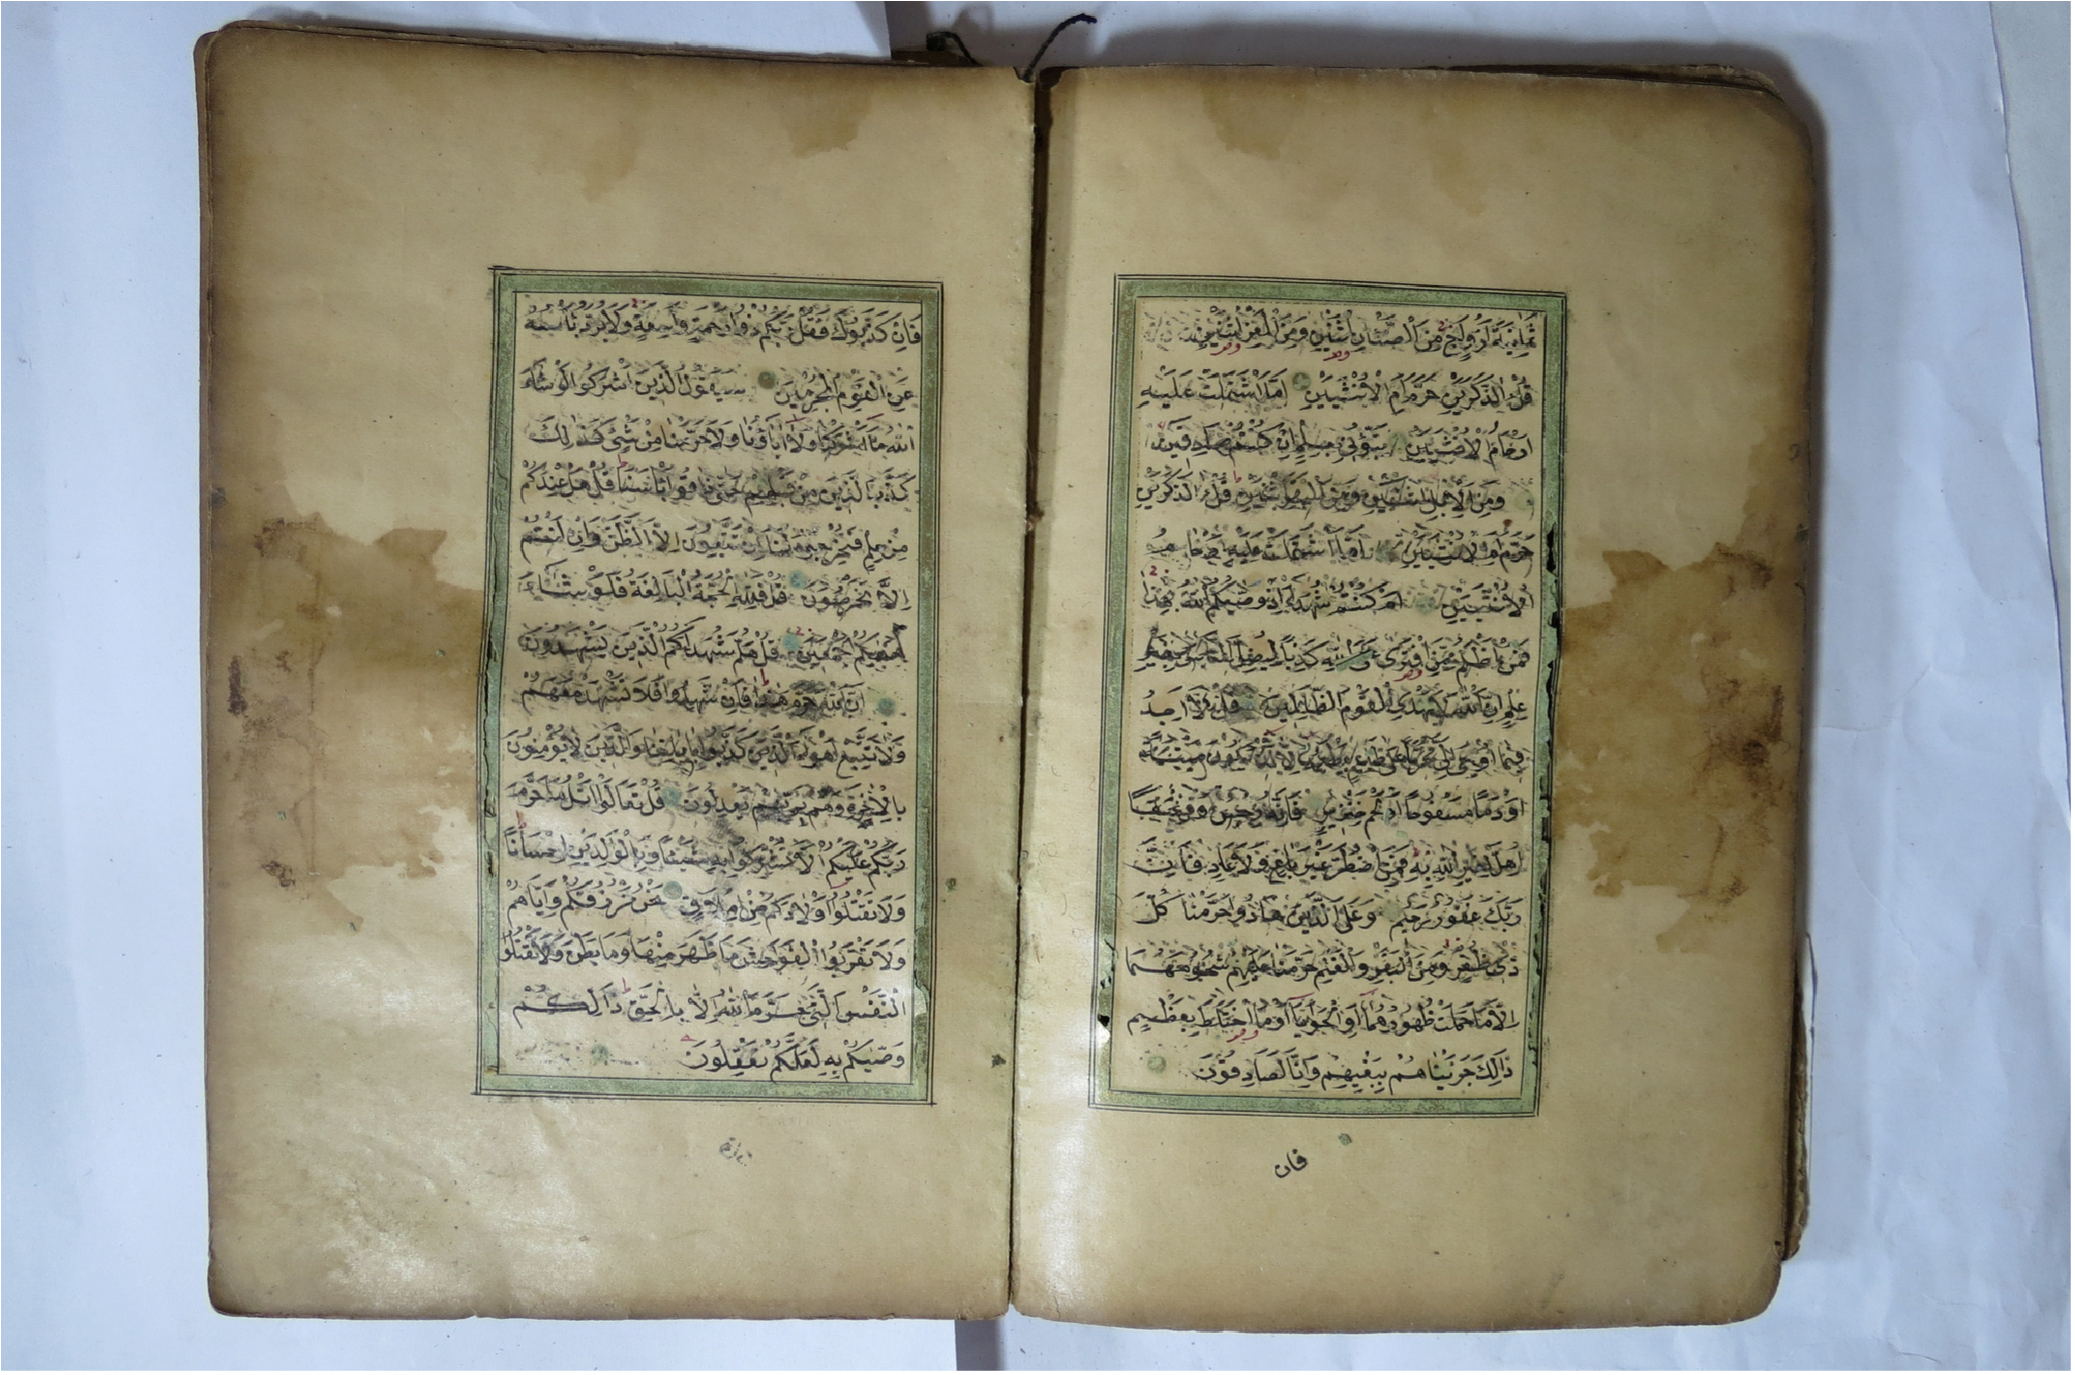 ثَمَانِيَةَ اَزْوَاجٍ مِنَ الضَّأْنِ اثْنَيْنِ وَمِنَ الْمَعْزِ اثْنَيْنِ
قُلْ ءٰالذَّكَرَيْنِ حَرَّمَ اَمِ الْاُنْثَيَيْنِ اَمَّا اشْتَمَلَتْ عَلَيْهِ
اَرْحَامُ الْاُنْثَيَيْنِ نَبِّؤُنِى بِعِلْمٍ اِنْ كُنْتُمْ صَادِقِينَ
وَمِنَ الْاِبِلِ اثْنَيْنِ وَمِنَ الْبَقَرِ اثْنَيْنِ قُلْ ءٰالذَّكَرَيْنِ
حَرَّمَ اَمِ الْاُنْثَيَيْنِ اَمَّا اشْتَمَلَتْ عَلَيْهِ اَرْحَامُ
الْاُنْثَيَيْنِ اَمْ كُنْتُمْ شُهَدَاءَ اِذْ وَصّٰيكُمُ اللّٰهُ بِهٰذَا
فَمَنْ اَظْلَمُ مِمَّنِ افْتَرٰى عَلَى اللّٰهِ كَذِبًا لِيُضِلَّ النَّاسَ بِغَيْرِ
عِلْمٍ اِنَّ اللّٰهَ لَا يَهْدِى الْقَوْمَ الظَّالِمِينَ قُلْ لَا اَجِدُ
فِيمَا اُوحِىَ اِلَىَّ مُحَرَّمًا عَلٰى طَاعِمٍ يَطْعَمُهُ اِلَّا اَنْ يَكُونَ مَيْتَةً
اَوْ دَمًا مَسْفُوحًا اَوْ لَحْمَ خِنْزِيرٍ فَاِنَّهُ رِجْسٌ اَوْ فِسْقًا
اُهِلَّ لِغَيْرِ اللّٰهِ بِهِ فَمَنِ اضْطُرَّ غَيْرَ بَاغٍ وَلَا عَادٍ فَاِنَّ
رَبَّكَ غَفُورٌ رَحِيمٌ وَعَلَى الَّذِينَ هَادُوا حَرَّمْنَا كُلَّ
ذِى ظُفُرٍ وَمِنَ الْبَقَرِ وَالْغَنَمِ حَرَّمْنَا عَلَيْهِمْ شُحُومَهُمَا
اِلَّا مَا حَمَلَتْ ظُهُورُهُمَا اَوِ الْحَوَايَا اَوْ مَا اخْتَلَطَ بِعَظْمٍ
ذَالِكَ جَزَيْنَاهُمْ بِبَغْيِهِمْ وَاِنَّا لَصَادِقُونَ
فان
فَاِنْ كَذَّبُوكَ فَقُلْ رَبُّكُمْ ذُو رَحْمَةٍ وَاسِعَةٍ وَلَا يُرَدُّ بَأْسُهُ
عَنِ الْقَوْمِ الْمُجْرِمِينَ سَيَقُولُ الَّذِينَ اَشْرَكُوا لَوْ شَاءَ
اللّٰهُ مَا اَشْرَكْنَا وَلَا اٰبَاؤُنَا وَلَا حَرَّمْنَا مِنْ شَىْءٍ كَذٰلِكَ
كَذَّبَ الَّذِينَ مِنْ قَبْلِهِمْ حَتّٰى ذَاقُوا بَأْسَنَا قُلْ هَلْ عِنْدَكُمْ
مِنْ عِلْمٍ فَتُخْرِجُوهُ لَنَا اِنْ تَتَّبِعُونَ اِلَّا الظَّنَّ وَاِنْ اَنْتُمْ
اِلَّا تَخْرُصُونَ قُلْ فَلِلّٰهِ الْحُجَّةُ الْبَالِغَةُ فَلَوْ شَاءَ
لَهَدٰيكُمْ اَجْمَعِينَ قُلْ هَلُمَّ شُهَدَاءَكُمُ الَّذِينَ يَشْهَدُونَ
اَنَّ اللّٰهَ حَرَّمَ هٰذَا فَاِنْ شَهِدُوا فَلَا تَشْهَدْ مَعَهُمْ
وَلَا تَتَّبِعْ اَهْوَاءَ الَّذِينَ كَذَّبُوا بِاٰيَاتِنَا وَالَّذِينَ لَا يُؤْمِنُونَ
بِالْاٰخِرَةِ وَهُمْ بِرَبِّهِمْ يَعْدِلُونَ قُلْ تَعَالَوْا اَتْلُ مَا حَرَّمَ
رَبُّكُمْ عَلَيْكُمْ اَلَّا تُشْرِكُوا بِهِ شَيْئًا وَبِالْوَالِدَيْنِ اِحْسَانًا
وَلَا تَقْتُلُوا اَوْلَادَكُمْ مِنْ اِمْلَاقٍ نَحْنُ نَرْزُقُكُمْ وَاِيَّاهُمْ
وَلَا تَقْرَبُوا الْفَوَاحِشَ مَا ظَهَرَ مِنْهَا وَمَا بَطَنَ وَلَا تَقْتُلُوا
النَّفْسَ الَّتِى حَرَّمَ اللّٰهُ اِلَّا بِالْحَقِّ ذَالِكُمْ
وَصّٰيكُمْ بِهِ لَعَلَّكُمْ تَعْقِلُونَ